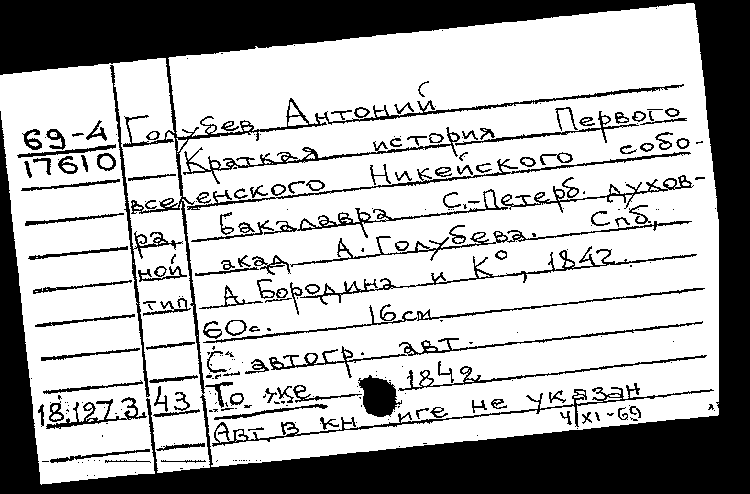 69-4 Голубев, Антоний
17610 Краткая история Первого
вселенского Никейского собо-
ра, бакалавра С.-Петерб. духов-
ной акад А. Голубева. Спб,
тип. А. Бородина и К°, 1842.
60с. 16см
С автогр. авт.
18.127.3.43 То же. 1842.
Авт. в кн иге не указан.
4/XI-69